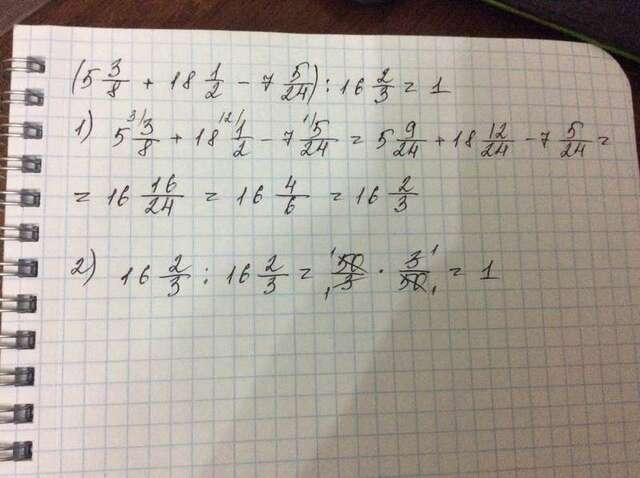 (5 3/8 + 18 1/2 - 7 5/24) : 16 2/3 = 1
1) 5 3/8 + 18 1/2 - 7 5/24 = 5 9/24 + 18 12/24 - 7 5/24 =
= 16 16/24 = 16 4/6 = 16 2/3
2) 16 2/3 : 16 2/3 = 50/3 · 3/50 = 1